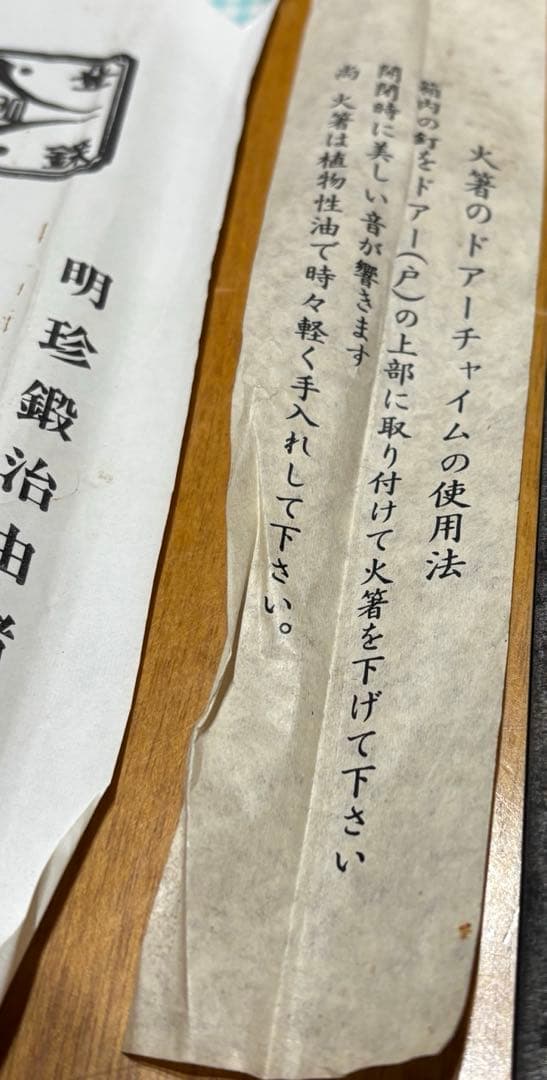 火箸のドアーチャイムの使用法
箱内の釘をドアー(戸)の上部に取り付けて火箸を下げて下さい
開閉時に美しい音が響きます
尚 火箸は植物性油で時々軽く手入れして下さい。
明珍鍛冶由緒